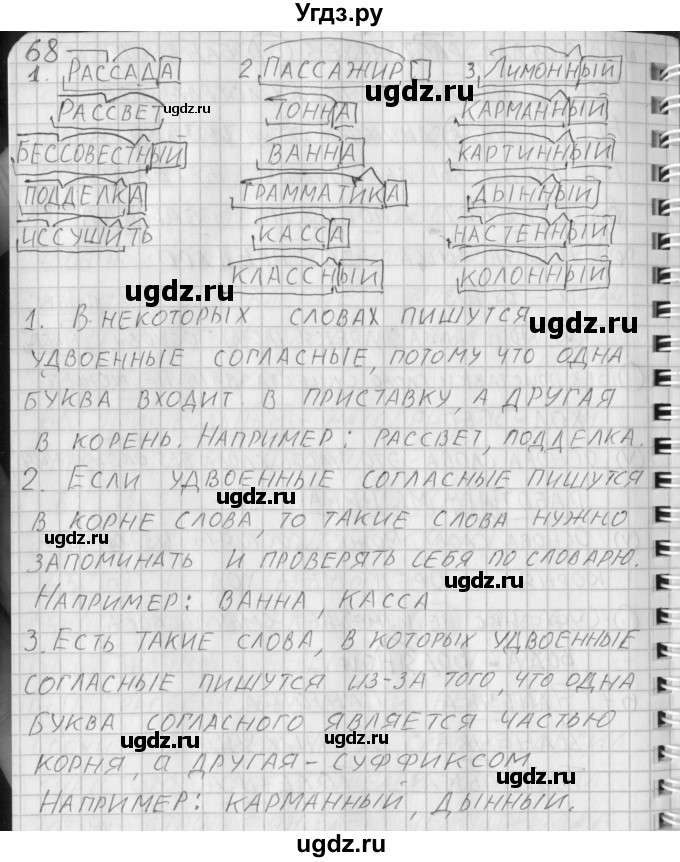 Угдз.ру
68
1. РАССАДА 2. ПАССАЖИР 3. ЛИМОННЫЙ
РАССВЕТ ТОННА КАРМАННЫЙ
БЕССОВЕСТНЫЙ ВАННА КАРТИННЫЙ
ПОДДЕЛКА ГРАММАТИКА ДЫННЫЙ
ИССУШИТЬ КАССА НАСТЕННЫЙ
КЛАССНЫЙ КОЛОННЫЙ
1. В НЕКОТОРЫХ СЛОВАХ ПИШУТСЯ
УДВОЕННЫЕ СОГЛАСНЫЕ, ПОТОМУ ЧТО ОДНА
БУКВА ВХОДИТ В ПРИСТАВКУ, А ДРУГАЯ
В КОРЕНЬ. НАПРИМЕР: РАССВЕТ, ПОДДЕЛКА.
2. ЕСЛИ УДВОЕННЫЕ СОГЛАСНЫЕ ПИШУТСЯ
В КОРНЕ СЛОВА, ТО ТАКИЕ СЛОВА НУЖНО
ЗАПОМИНАТЬ И ПРОВЕРЯТЬ СЕБЯ ПО СЛОВАРЮ.
НАПРИМЕР: ВАННА, КАССА
3. ЕСТЬ ТАКИЕ СЛОВА, В КОТОРЫХ УДВОЕННЫЕ
СОГЛАСНЫЕ ПИШУТСЯ ИЗ-ЗА ТОГО, ЧТО ОДНА
БУКВА СОГЛАСНОГО ЯВЛЯЕТСЯ ЧАСТЬЮ
КОРНЯ, а ДРУГАЯ - СУФФИКСОМ.
НАПРИМЕР: КАРМАННЫЙ, ДЫННЫЙ.
ugdz.ru
ugdz.ru
ugdz.ru
ugdz.ru
ugdz.ru
ugdz.ru
ugdz.ru
ugdz.ru
ugdz.ru
ugdz.ru
ugdz.ru
ugdz.ru